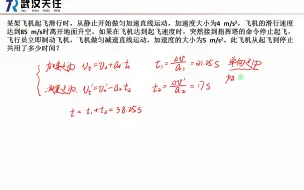 武汉天仕
某架飞机起飞滑行时，从静止开始做匀加速直线运动，加速度大小为4 m/s²，飞机的滑行速度
达到85 m/s时离开地面升空。如果在飞机达到起飞速度时，突然接到指挥塔的命令停止起飞，
飞行员立即制动飞机，飞机做匀减速直线运动，加速度的大小为5 m/s²，此飞机从起飞到停止
共用了多少时间？
加速运动: Vt = V0 + a1t t1 = ΔV/a1 = 21.25s 单向运动
减速运动: Vt' = V0' - a2t2 t2 = ΔV'/a2 = 17s
t = t1 + t2 = 38.25s